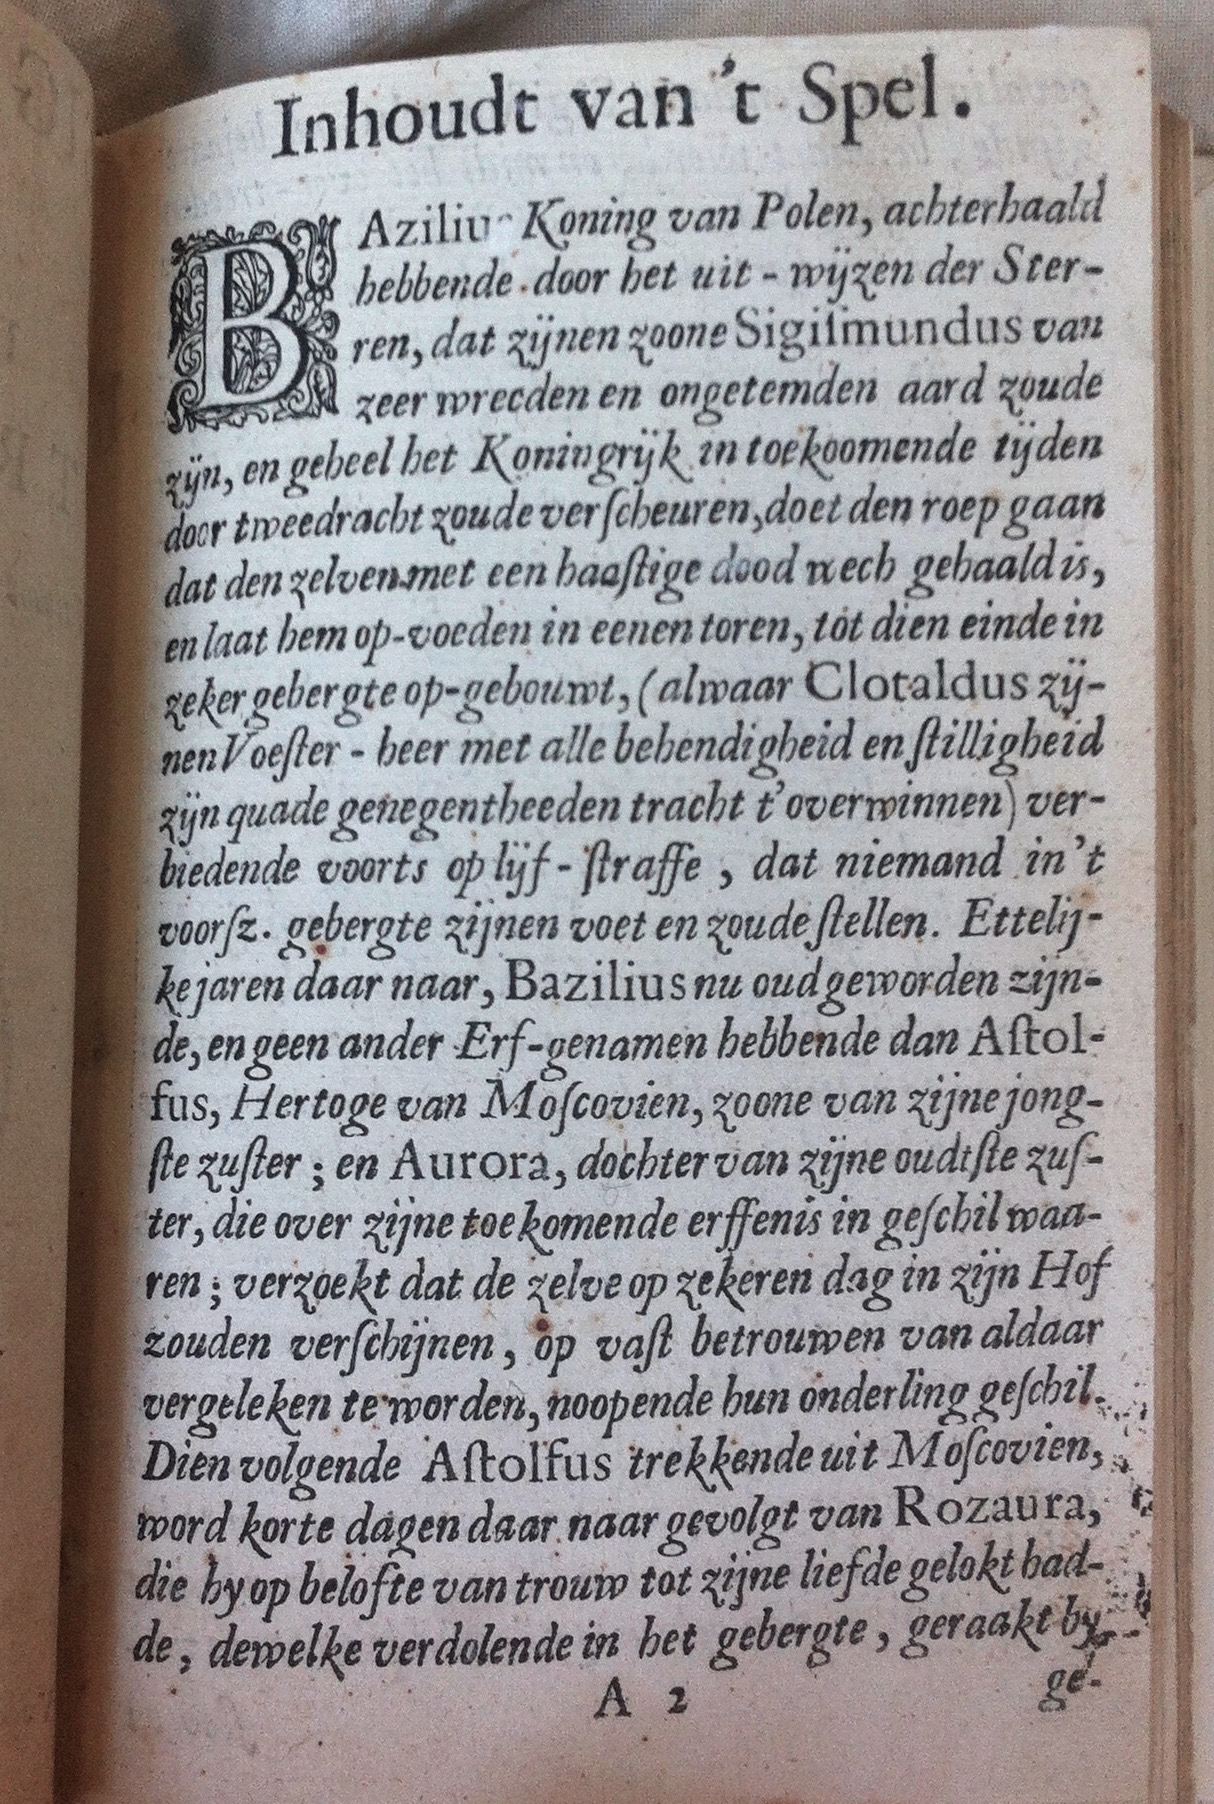 Inhoudt van 't Spel.
BAzilius Koning van Polen, achterhaald
hebbende door het uit-wijzen der Ster-
ren, dat zijnen zoone Sigiſmundus van
zeer wreeden en ongetemden aard zoude
zijn, en geheel het Koningrijk in toekoomende tijden
door tweedracht zoude verſcheuren, doet den roep gaan
dat den zelven met een haaſtige dood wech gehaald is,
en laat hem op-voeden in eenen toren, tot dien einde in
zeker gebergte op-gebouwt, (alwaar Clotaldus zij-
nen Voeſter-heer met alle behendigheid en ſtilligheid
zijn quade genegentheeden tracht t'overwinnen) ver-
biedende voorts op lijf-ſtraffe, dat niemand in 't
voorſz. gebergte zijnen voet en zoude ſtellen. Ettelij-
ke jaren daar naar, Bazilius nu oud geworden zijn-
de, en geen ander Erf-genamen hebbende dan Aſtol-
fus, Hertoge van Moſcovien, zoone van zijne jong-
ſte zuſter; en Aurora, dochter van zijne oudtſte zuſ-
ter, die over zijne toekomende erffenis in geſchil waa-
ren; verzoekt dat de zelve op zekeren dag in zijn Hof
zouden verſchijnen, op vaſt betrouwen van aldaar
vergeleken te worden, noopende hun onderling geſchil.
Dien volgende Aſtolfus trekkende uit Moſcovien,
word korte dagen daar naar gevolgt van Rozaura,
die hy op belofte van trouw tot zijne liefde gelokt had-
de, dewelke verdolende in het gebergte, geraakt by
A 2 ge-